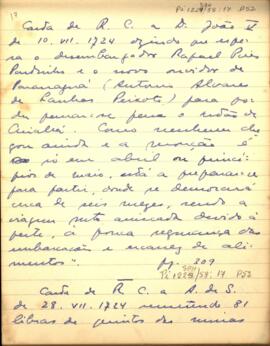 17
Pi 1228/58: 17 P52
Carta de R. C. a D. João V
de 10. VII. 1724 dizendo que espe-
ra o desembargador Rafael Pires
Pardinho e o novo ouvidor de
Paranaguá (Antonio Alvares
de Lanhas Peixoto) para po-
der
Cuiabá. Como nenhum che-
gou ainda e a monção é
só em abril ou princi-
pios de maio, está a preparar-se
para partir, donde se demorará
cerca de seis meses, sendo a
viagem muito arriscada devido á
peste, á pouca segurança das
embarcações e escassez de ali-
mentos". pg. 209
Pi 1228/58: 17 P52
Carta de R. C. a A. de S.
de 28. VII. 1724 remetendo 81
libras de quintos das minas